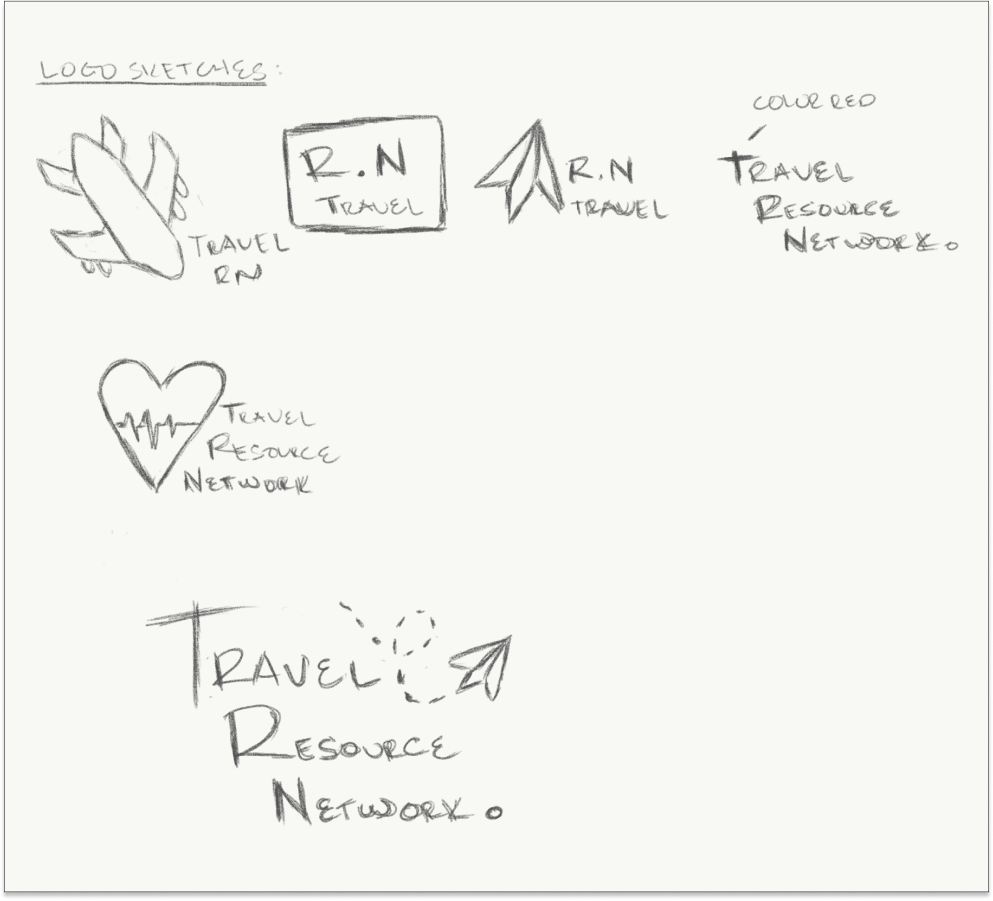 LOGO SKETCHES:
COLOR RED
TRAVEL
RN
R.N
TRAVEL
R.N
TRAVEL
TRAVEL
RESOURCE
NETWORK.
TRAVEL
RESOURCE
NETWORK
TRAVEL
RESOURCE
NETWORK.